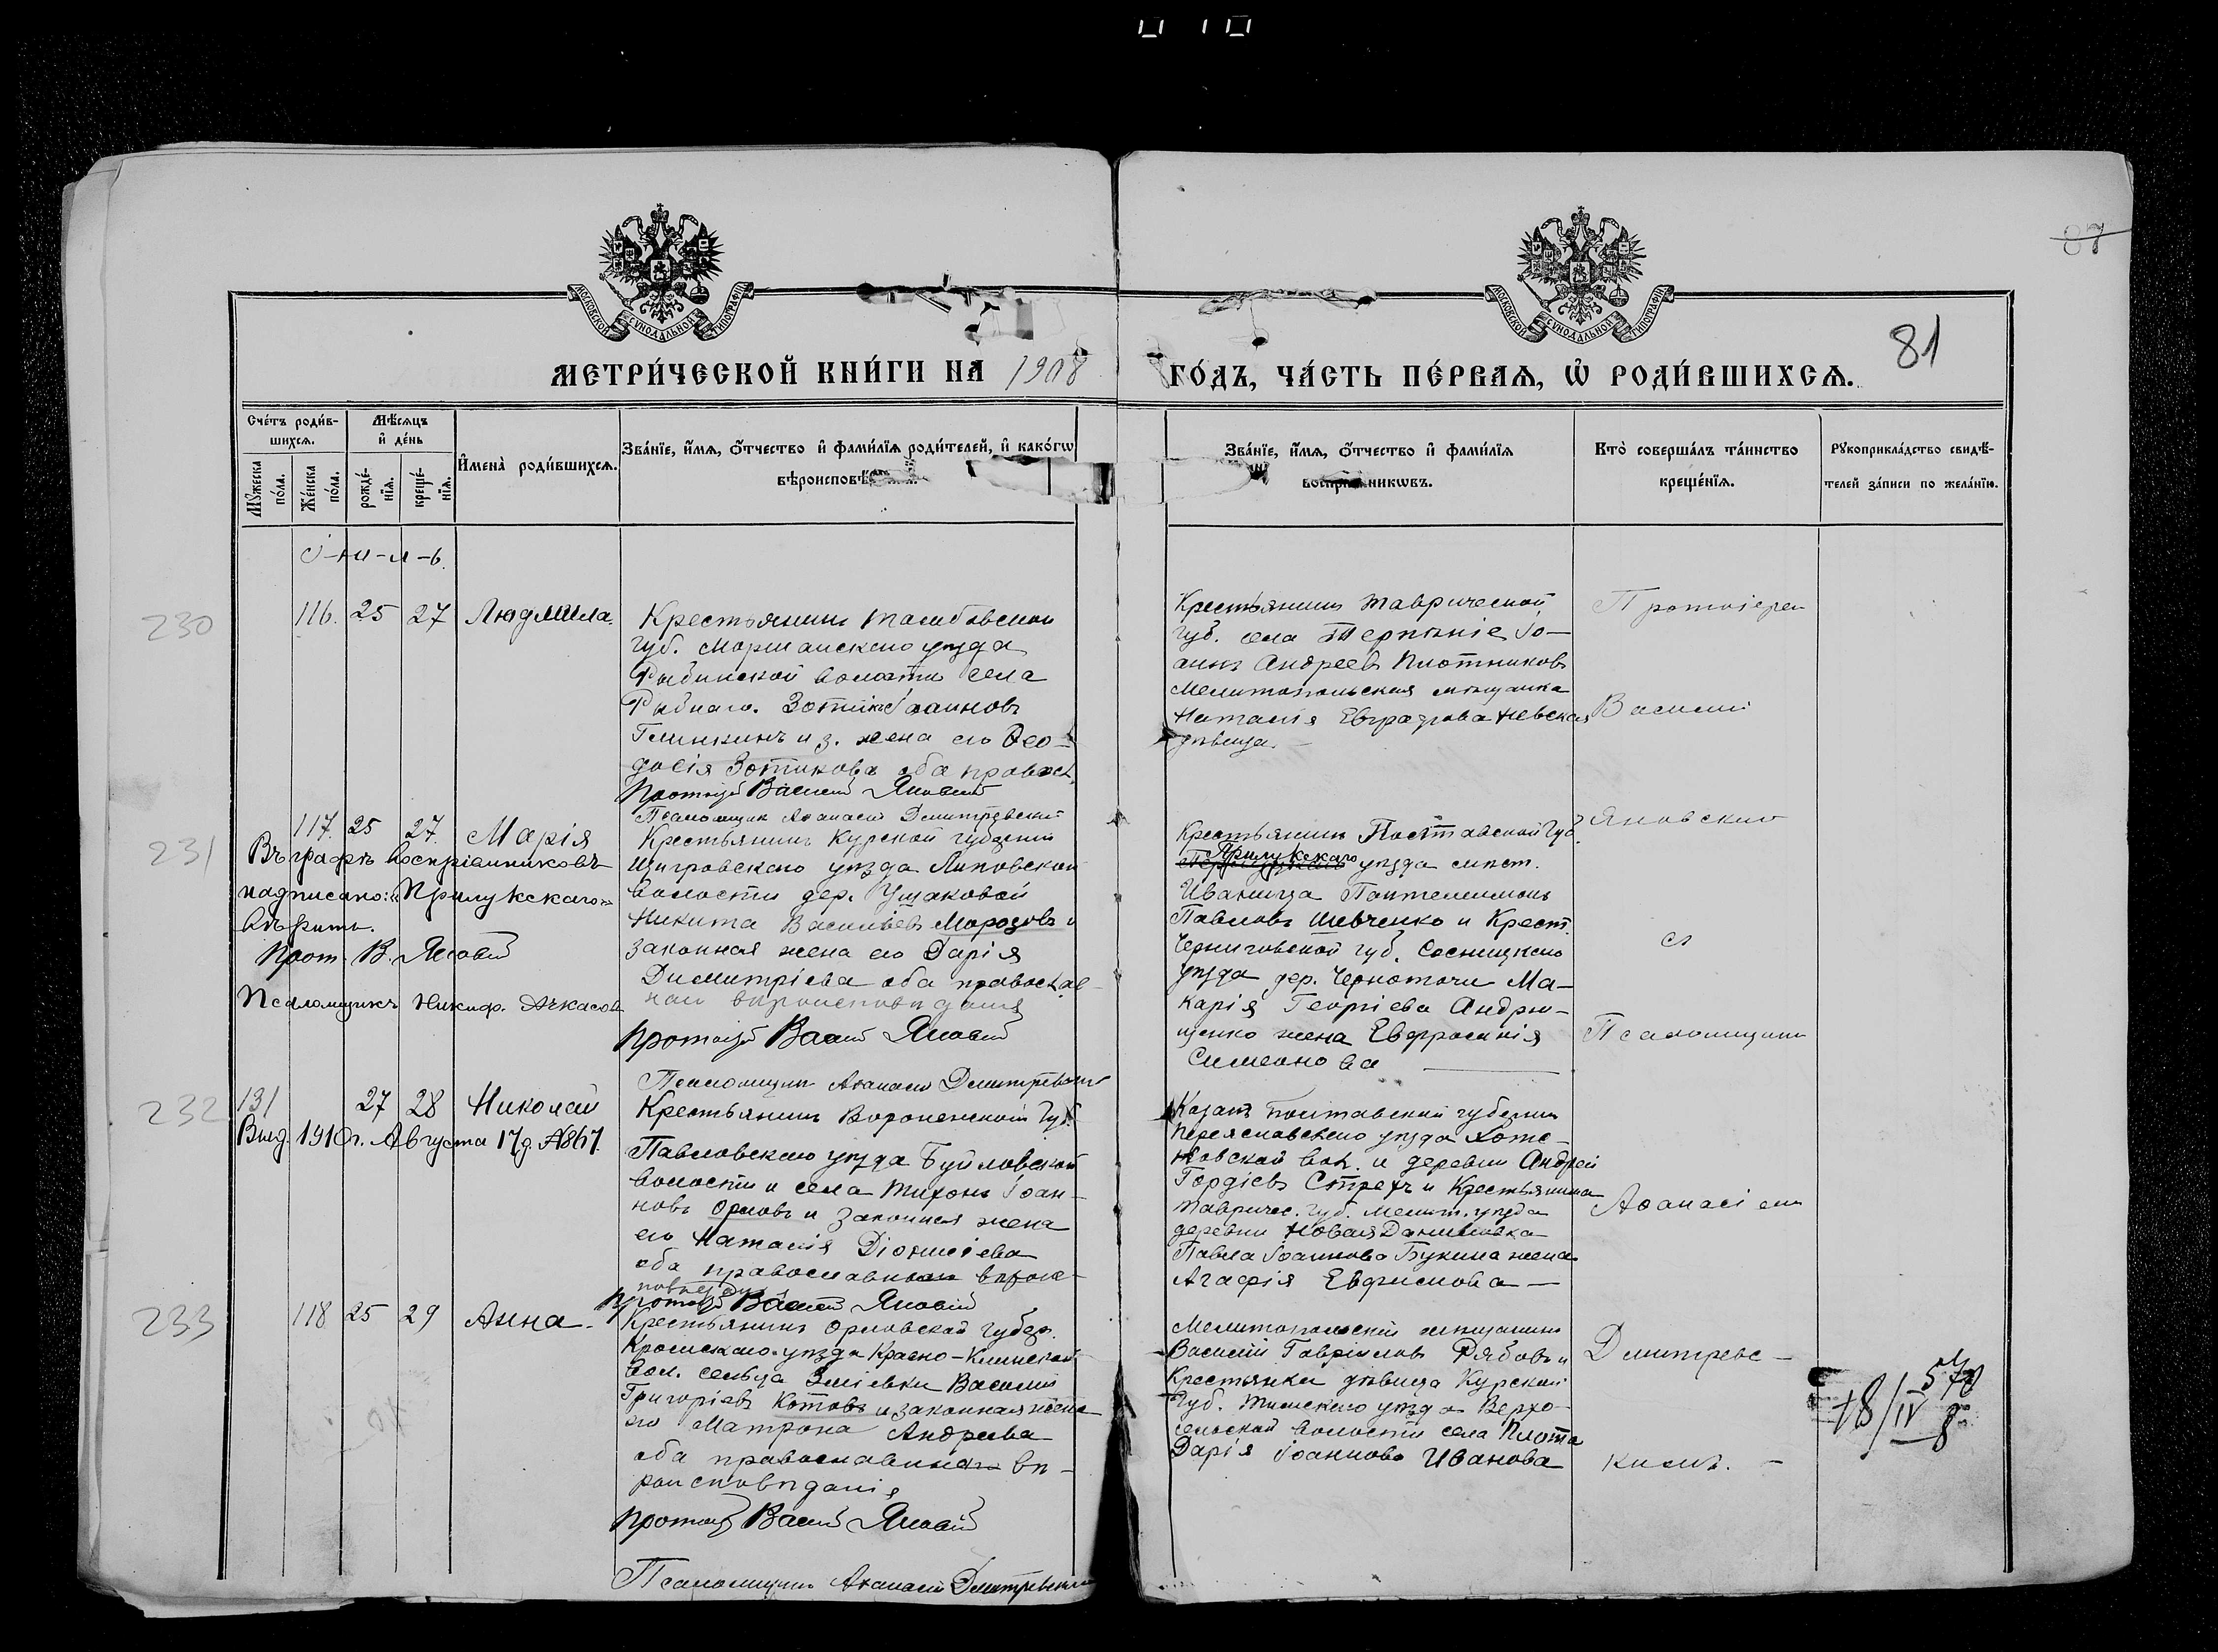 87
МОСКОВСКОЙ СѴНОДАЛЬНОЙ ТИПОГРАФІИ
МОСКОВСКОЙ СѴНОДАЛЬНОЙ ТИПОГРАФІИ
МЕТРИ́ЧЕСКОЙ КНИ́ГИ НА 1908
ГО́ДЪ, ЧА́СТЬ ПЕ́РВАѦ, Ѡ҆ РОДИ́ВШИХСѦ.
81
Сче́тъ роди́в-
шихсѧ.
Мꙋ́жеска по́ла.
Же́нска по́ла.
Мѣ́сѧцъ
и҆ де́нь
рожде́-
нїѧ.
креще́-
нїѧ.
И҆мена̀ роди́вшихсѧ.
Зва́нїе, и҆́мѧ, ѻ҆́тчество и҆ фами́лїѧ роди́телей, и҆ како́гѡ
вѣроисповѣ
Зва́нїе, и҆́мѧ, ѻ҆́тчество и҆ фами́лїѧ
никѡвъ.
Кто̀ соверша́лъ та́инство
креще́нїѧ.
Рꙋкоприкла́дство свидѣ́-
телей за́писи по жела́нїю.
І-ю-л-ь.
230
116. 25 27 Людмила.
Крестьянинъ Тамбовской
губ. Моршанскаго уѣзда
Рыбинской волости села
Рыбнаго. Зотикъ Іоанновъ
Глинкинъ и з. жена его Ѳео-
досія Зотикова оба правосл.
Протоіер Василій Яновскій
Псаломщик Аѳанасій Дмитревскій
Крестьянинъ Таврической
губ. села Терпѣніе Іо-
аннъ Андреевъ Плотниковъ
Мелитопольская мѣщанка
Наталія Евграфова Невская
дѣвица.
Протоіерей
Василій
231
117. 25 27. Марія
Въ графѣ воспріемниковъ
надписано: „Прилукскаго"
вѣрить.
Прот. В. Яновскій
Псаломщикъ Никиф. Ачкасовъ
Крестьянинъ Курской губерніи
Щигровскаго уѣзда Липовской
волости дер. Ушаковой
Никита Васильевъ Морозовъ и
законная жена его Дарія
Димитріева оба православ-
наго вѣроисповѣданія
Протоіер Василій Яновскій
Псаломщикъ Аѳанасій Дмитревскій
Крестьянинъ Полтавской губ.
Прилукскаго
уѣзда мѣст.
Иваница Пантелимонъ
Павловъ Шевченко и Крест.
Черниговской губ. Сосницкаго
уѣзда дер. Чернотичи Ма-
карія Георгіева Андрю-
щенко жена Евфросинія
Симеонова
Яновскій
съ
Псаломщикомъ
232
131 27 28 Николай
Выд. 1910 г. Августа 17 д. №867.
Крестьянинъ Воронежской губ.
Павловскаго уѣзда Буйловской
волости и села Тихонъ Іоан-
новъ Орловъ и законная жена
его Наталія Діонисіева
оба православнаго вѣроис-
повѣданія
Протоіер Василій Яновскій
Казакъ Полтавской губерніи
Переяславскаго уѣзда
вол. и деревни Андрей
Гордіевъ и Крестьянина
Тавричес. губ. Мелит. уѣзда
деревни Новая Даниловка
Павла Іоаннова Букина жена
Агафія Евфимова
Аѳанасіемъ
233
118 25 29 Анна.
Крестьянинъ Орловской губер.
Кромскаго уѣзда Красно-Клинской
вол. сельца Зміевки Василій
Григоріевъ Котовъ и законная жена
его Матрона Андреева
оба православнаго вѣ-
роисповѣданія
Протоіер Василій Яновскій
Псаломщикъ Аѳанасій Дмитревскій
Мелитопольскій мѣщанинъ
Василій Гавріиловъ Рябовъ и
Крестьянка дѣвица Курской
губ. Тимскаго уѣзда Верхо-
сельской волости села Плота
Дарія Іоаннова Иванова
Дмитревс-
кимъ.